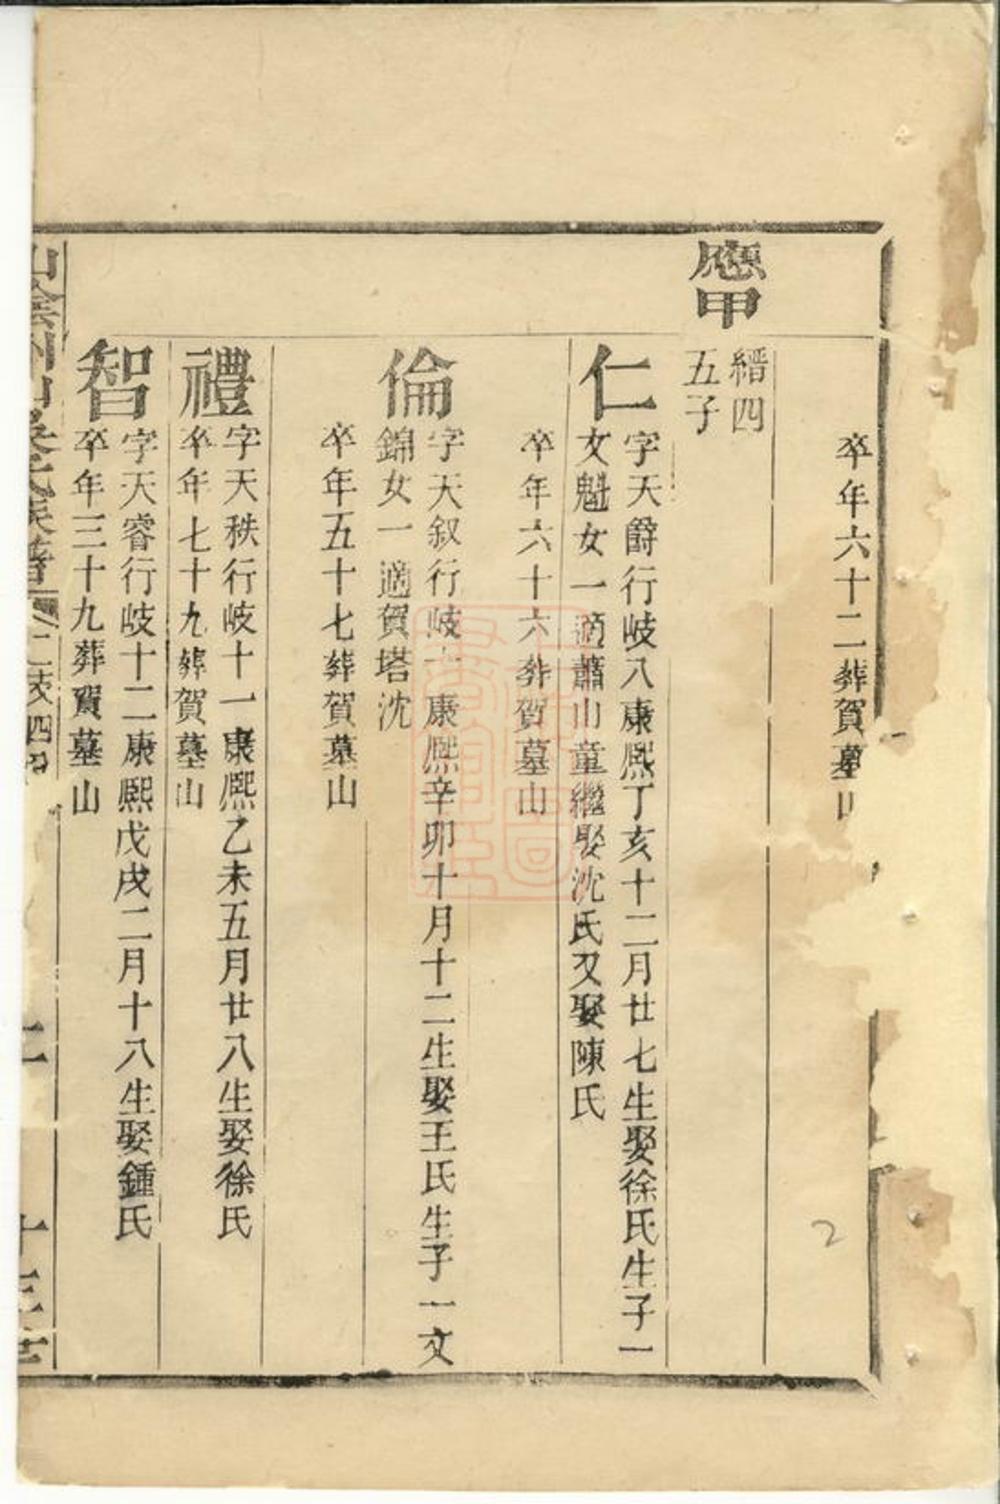 卒年六十二葬賀墓山
應甲
縉四
五子
仁
字天爵行岐八康熙丁亥十二月廿七生娶徐氏生子一
文魁女一適蕭山童繼娶沈氏又娶陳氏
卒年六十六葬賀墓山
倫
字天叙行岐十康熙辛卯十月十二生娶王氏生子一文
錦女一適賀塔沈
卒年五十七葬賀墓山
禮
字天秩行岐十一康熙乙未五月廿八生娶徐氏
卒年七十九葬賀墓山
智
字天睿行岐十二康熙戊戌二月十八生娶鍾氏
卒年三十九葬賀墓山
氏族譜
二
十三世
2